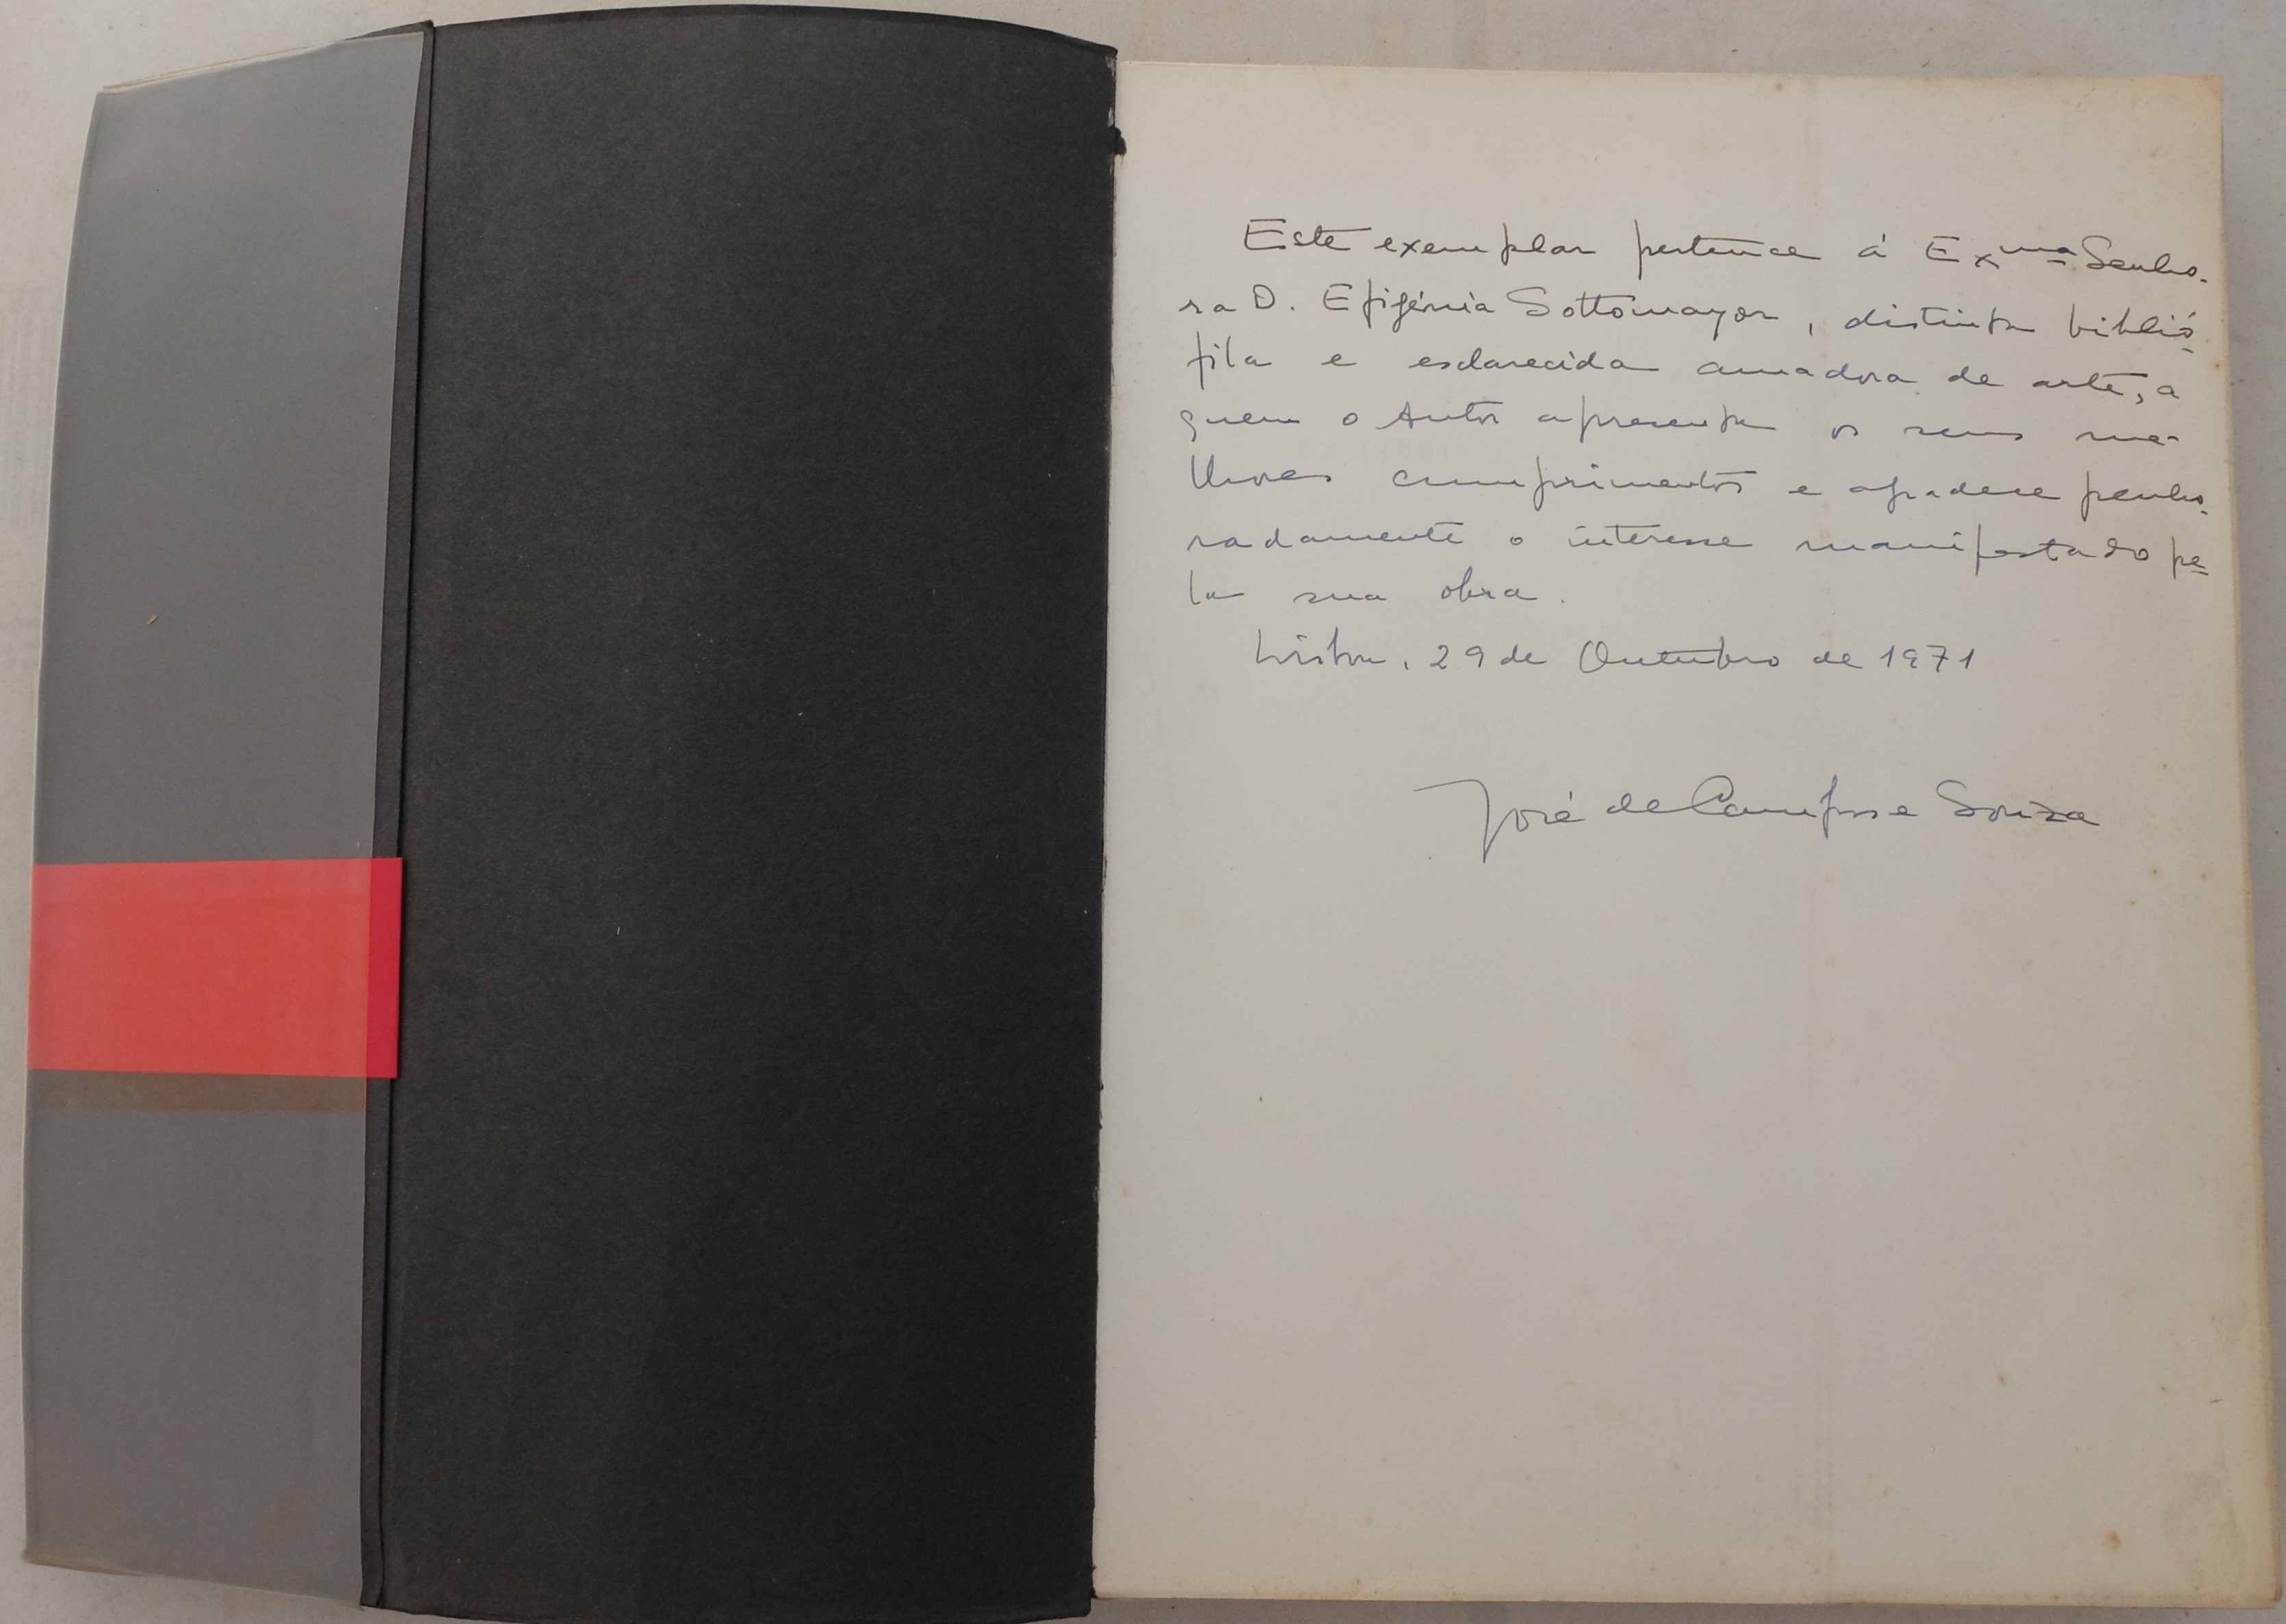 Este exemplar pertence à Exma Senho-
ra D. Efigénia Sottomayor, distinta biblió-
fila e esclarecida amadora de arte, a
quem o Autor apresenta os seus me-
lhores cumprimentos e agradece penho-
radamente o interesse manifestado pe-
la sua obra.
Lisboa, 29 de Outubro de 1971
José de Campos e Souza